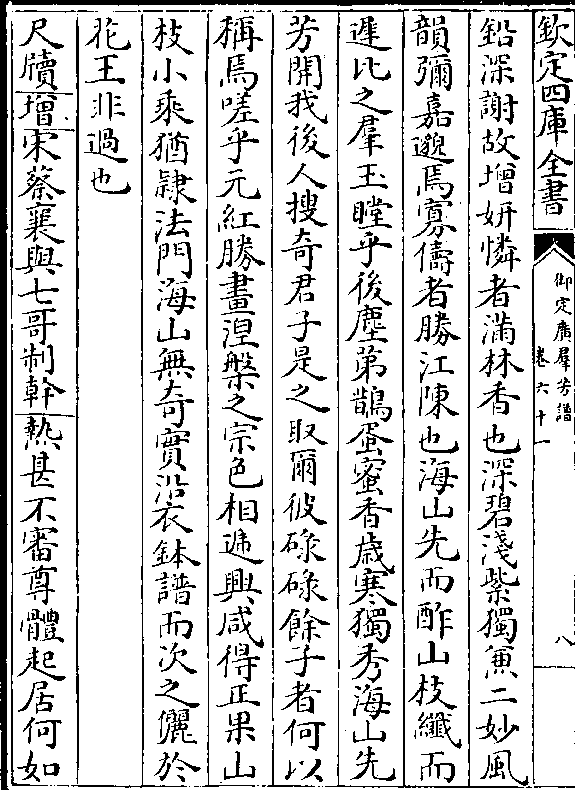 欽定四庫全書
御定廣羣芳譜
卷六十一
八
鉛深謝故增妍憐者滿林香也深碧淺紫獨兼二妙風
韻彌嘉邈焉寡儔者勝江陳也海山先而酢山枝纖而
遲比之羣玉瞠乎後塵苐鵲蛋蜜香歳寒獨秀海山先
芳開我後人搜奇君子是之取爾彼碌碌餘子者何以
稱焉嗟乎元紅勝畫涅槃之宗色相遞興咸得正果山
枝小乘猶隷法門海山無奇實沿衣鉢譜而次之儷於
花王非過也
尺牘增宋蔡襄與七哥制幹熱甚不審尊體起居何如